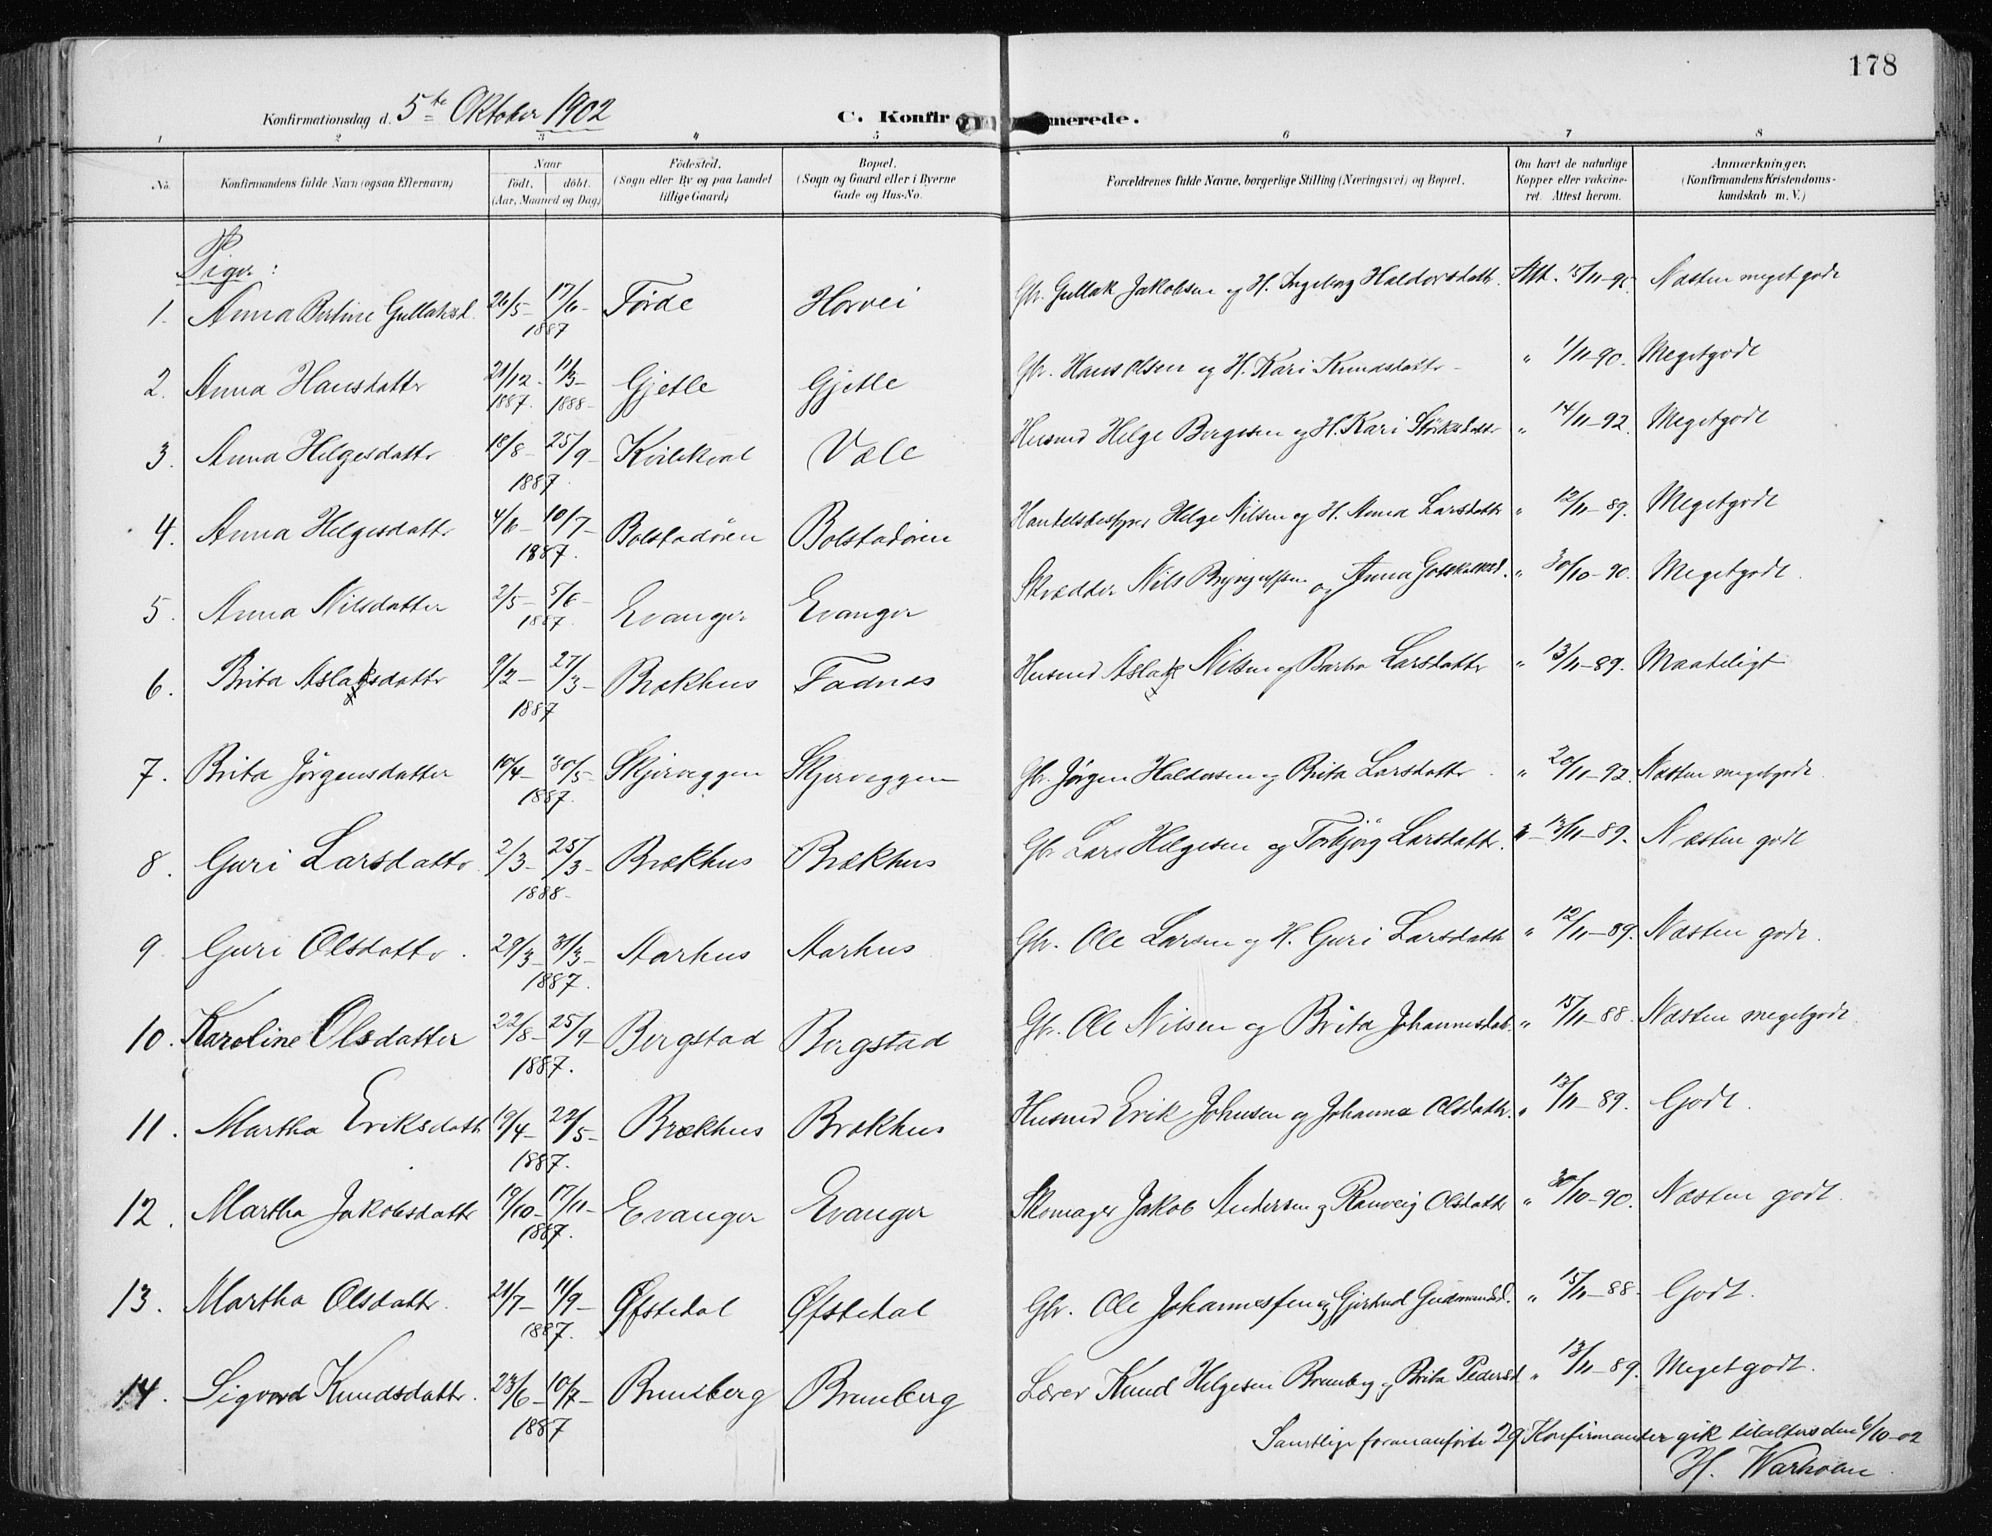 178
Konfirmationsdag d. 5te Oktober 1902
C. Konfirmerede.
1 2 3 4 5 6 7 8
No. Konfirmandens fulde Navn (ogsaa Efternavn) Naar født. døbt. (Aar, Maaned og Dag) Fødested. (Sogn eller By og paa Landet tillige Gaard) Bopæl. (Sogn og Gaard eller i Byerne Gade og Hus-No. Forældrenes fulde Navne, borgerlige Stilling (Næringsvei) og Bopæl. Om havt de naturlige Kopper eller vakcineret. Attest herom. Anmærkninger. (Konfirmandens Kristendomskundskab m. V.)
Piger:
1. Anna Bertine Gullaksd. 26/5- 17/6- 1887 Förde Horvei Gbr. Gullak Jakobsen og H. Ingeborg Haldorsdattr. Att. 15/11-95. Næsten meget godt
2. Anna Hansdattr 21/12- 1887. 11/3- 1888- Gjetle Gjetle Gbr. Hans Olsen og H. Kari Knudsdattr- " 1/11-90. Megetgodt
3. Anna Helgesdattr 18/8- 25/9- 1887. Kvilekval Væle Husmd Helge Bergesen og H. Kari Störksdattr " 14/11-92. Megetgodt
4. Anna Helgesdattr 4/6- 10/7- 1887. Bolstadören Bolstadören Handelsbestyrer Helge Nilsen og H. Anna Larsdattr " 12/11-89. Megetgodt
5. Anna Nilsdatter 2/5- 5/6- 1887. Evanger Evanger Skrædder Nils Brynjulfsen og Anna Gotskalksd. " 30/10-90. Megetgodt.
6. Brita Aslaksdattr 9/2- 27/3- 1887 Brækhus Fadnæs Husmd Aslak Nilsen og Barbra Larsdattr " 13/11-89. Maadeligt
7. Brita Jørgensdatter 10/4- 30/5- 1887. Skjerveggen Skjerveggen Gbr. Jørgen Haldorsen og Brita Larsdattr. " 20/11-92. Næsten megetgodt
8. Guri Larsdattr 2/3- 25/3- 1888- Brækhus Brækhus Gbr Lars Helgesen og Torbjörg Larsdattr. " 13/11-89. Næsten godt
9. Guri Olsdattr. 29/3- 31/3- 1887. Aarhus Aarhus Gbr. Ole Larsen og H. Guri Larsdattr " 12/11-89. Næsten godt.
10. Karoline Olsdatter 22/8- 25/9- 1887. Bergstad Bergstad Gbr. Ole Nilsen og Brita Johannesdat. " 15/11-88. Næsten megetgodt.
11. Martha Eriksdattr 19/4- 22/5- 1887. Brækhus Brækhus Husmd Erik Johnsen og Johanna Olsdattr. " 13/11-89. Godt.
12. Martha Jakobsdattr 19/10- 17/11- 1887. Evanger Evanger Skomager Jakob Andersen og Ranveig Olsdattr " 30/10-90. Næsten godt.
13. Martha Olsdattr. 21/7- 11/9- 1887. Øfstedal Øfstedal Gbr. Ole Johannesen og Gjertrud Gudmundsd. " 15/11-88. Godt.
14. Sigvord Knudsdattr. 23/6- 10/7- 1887 Brunberg Brunberg Lærer Knud Helgesen Brunberg og Brita Pedersd " 13/11-89. Megetgodt.
Samtlige foranførte 29 Konfirmanter gik tilalters den 6/10-02
H. Warholm